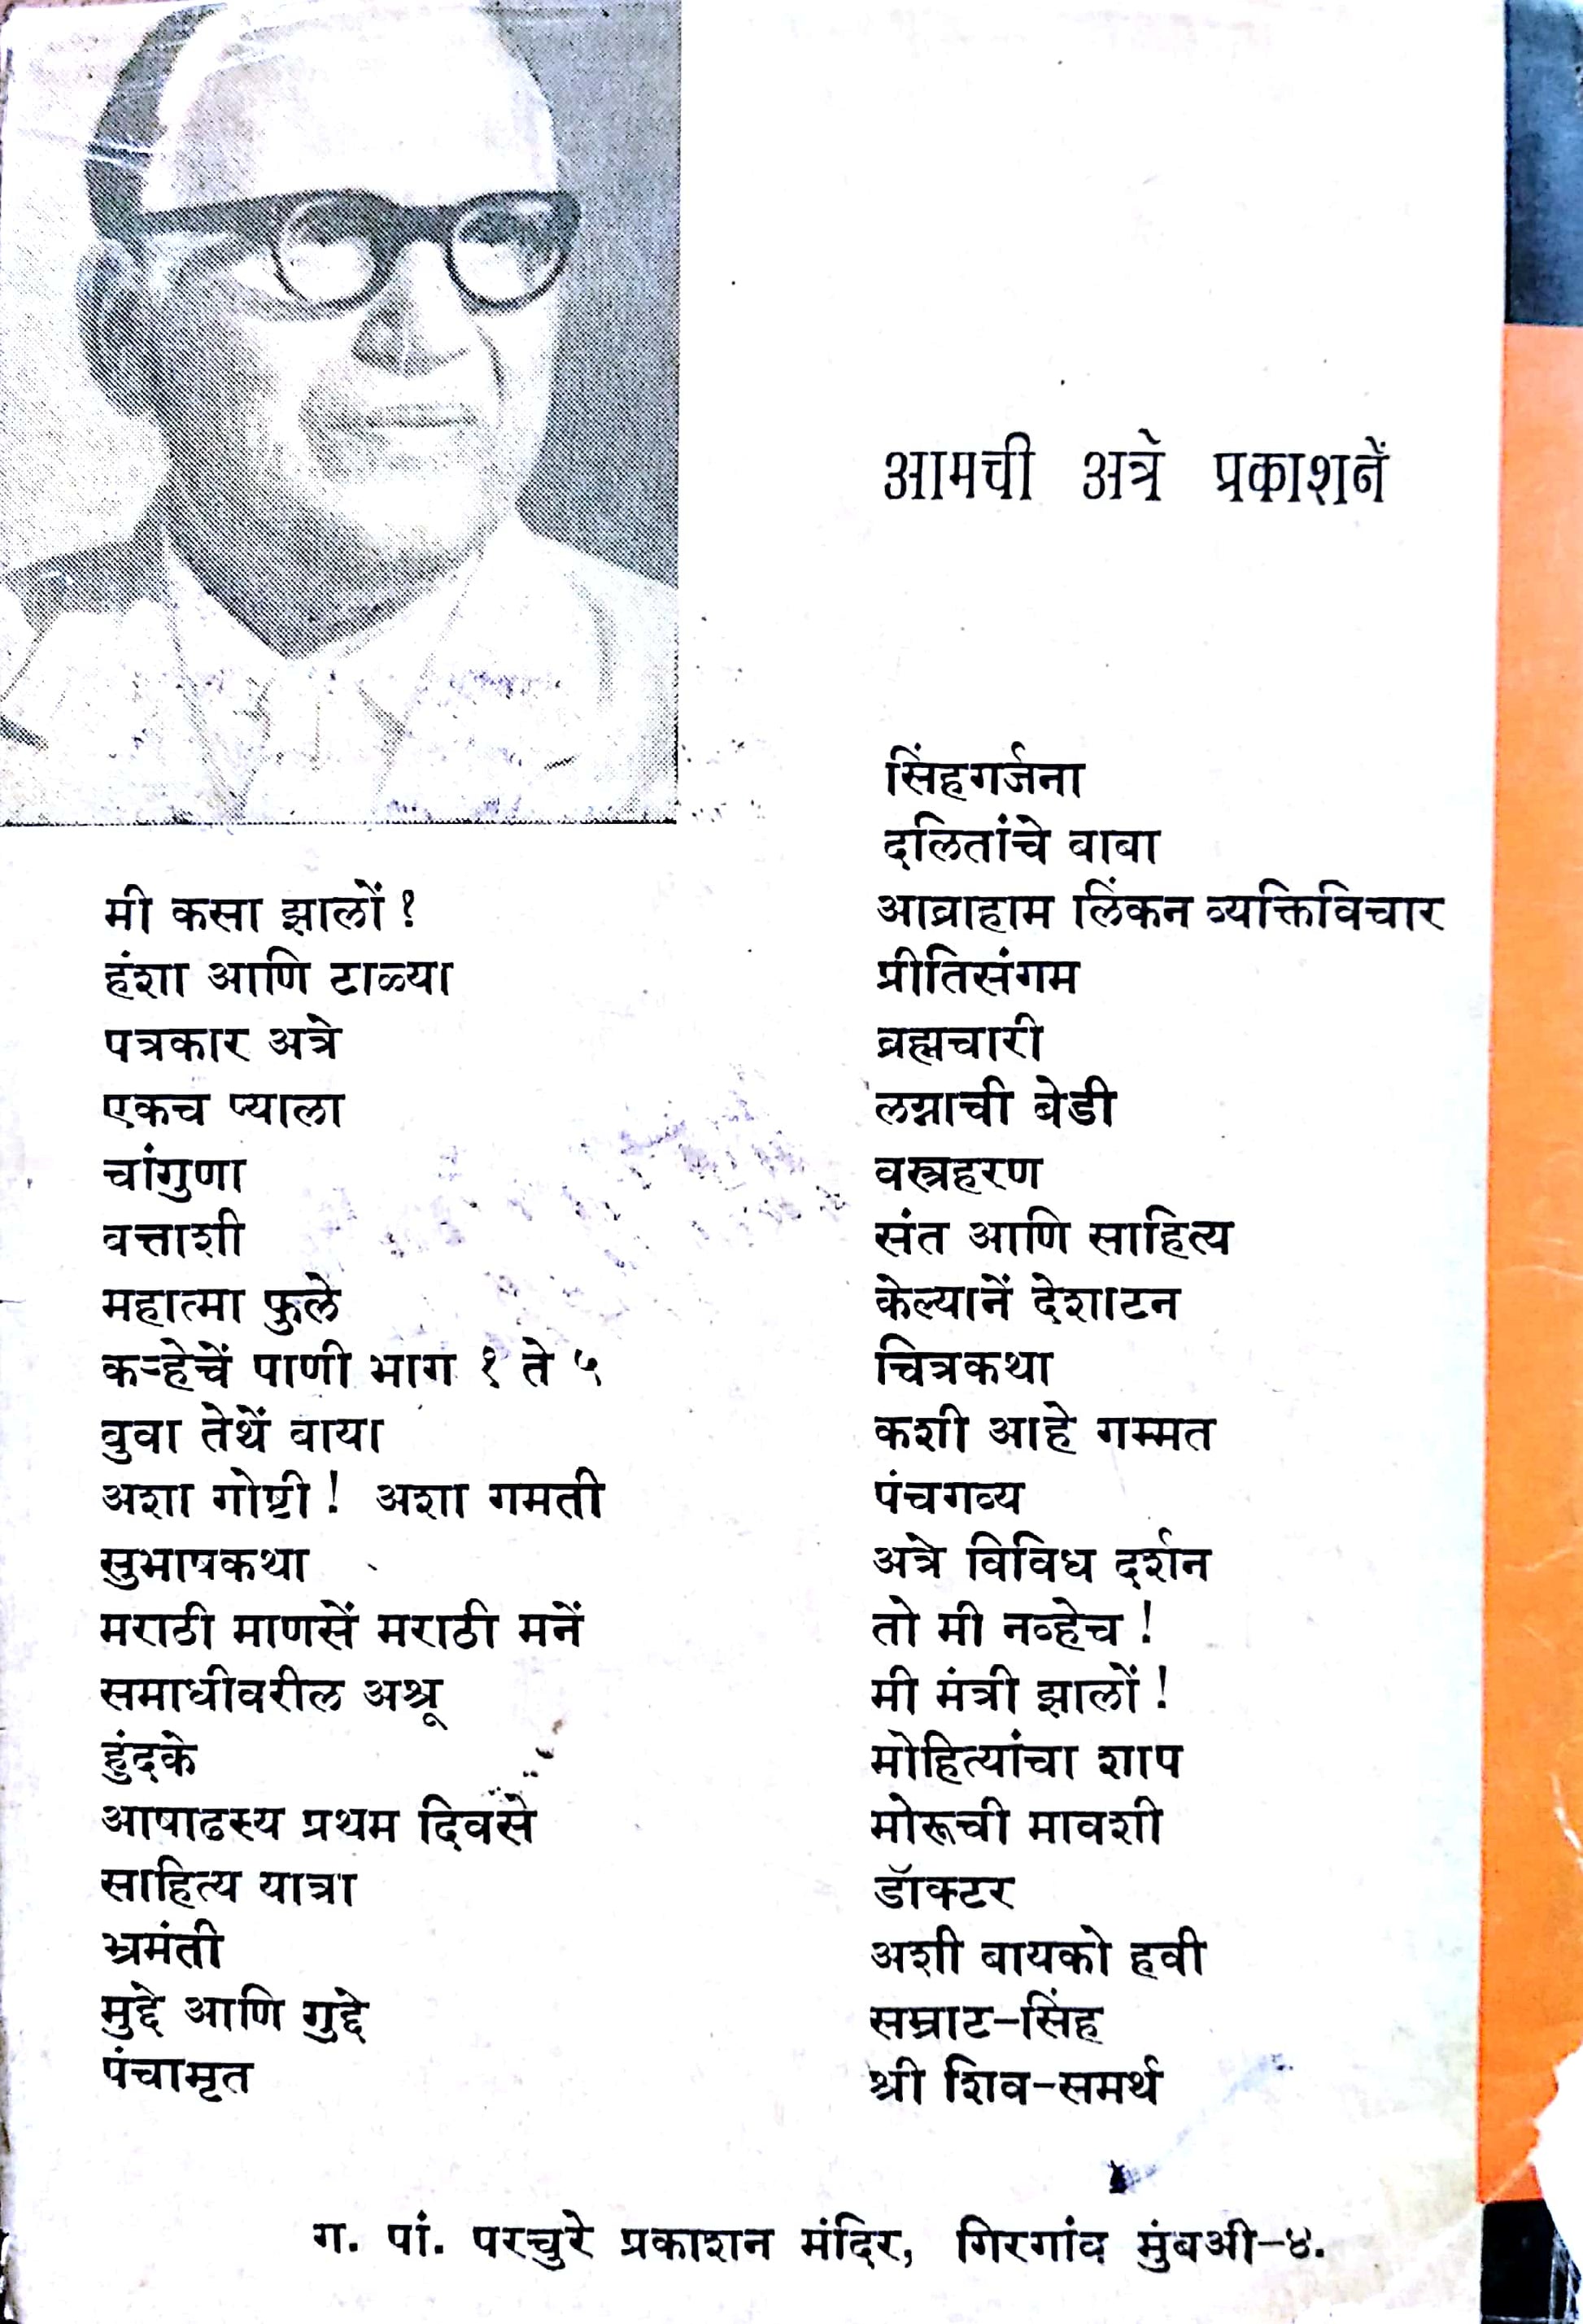 आमची अत्रे प्रकाशनें
मी कसा झालों ?
हंशा आणि टाळ्या
पत्रकार अत्रे
एकच प्याला
चांगुणा
वत्ताशी
महात्मा फुले
कऱ्हेचें पाणी भाग १ ते ५
बुवा तेथें बाया
अशा गोष्टी ! अशा गमती
सुभाषकथा
मराठी माणसें मराठी मनें
समाधीवरील अश्रू
हुंदके
आषाढस्य प्रथम दिवसे
साहित्य यात्रा
भ्रमंती
मुद्दे आणि गुद्दे
पंचामृत
सिंहगर्जना
दलितांचे बाबा
आब्राहाम लिंकन व्यक्तिविचार
प्रीतिसंगम
ब्रह्मचारी
लग्नाची बेडी
वस्त्रहरण
संत आणि साहित्य
केल्यानें देशाटन
चित्रकथा
कशी आहे गम्मत
पंचगव्य
अत्रे विविध दर्शन
तो मी नव्हेच !
मी मंत्री झालों !
मोहित्यांचा शाप
मोरूची मावशी
डॉक्टर
अशी बायको हवी
सम्राट-सिंह
श्री शिव-समर्थ
ग. पां. परचुरे प्रकाशन मंदिर, गिरगांव मुंबअी-४.